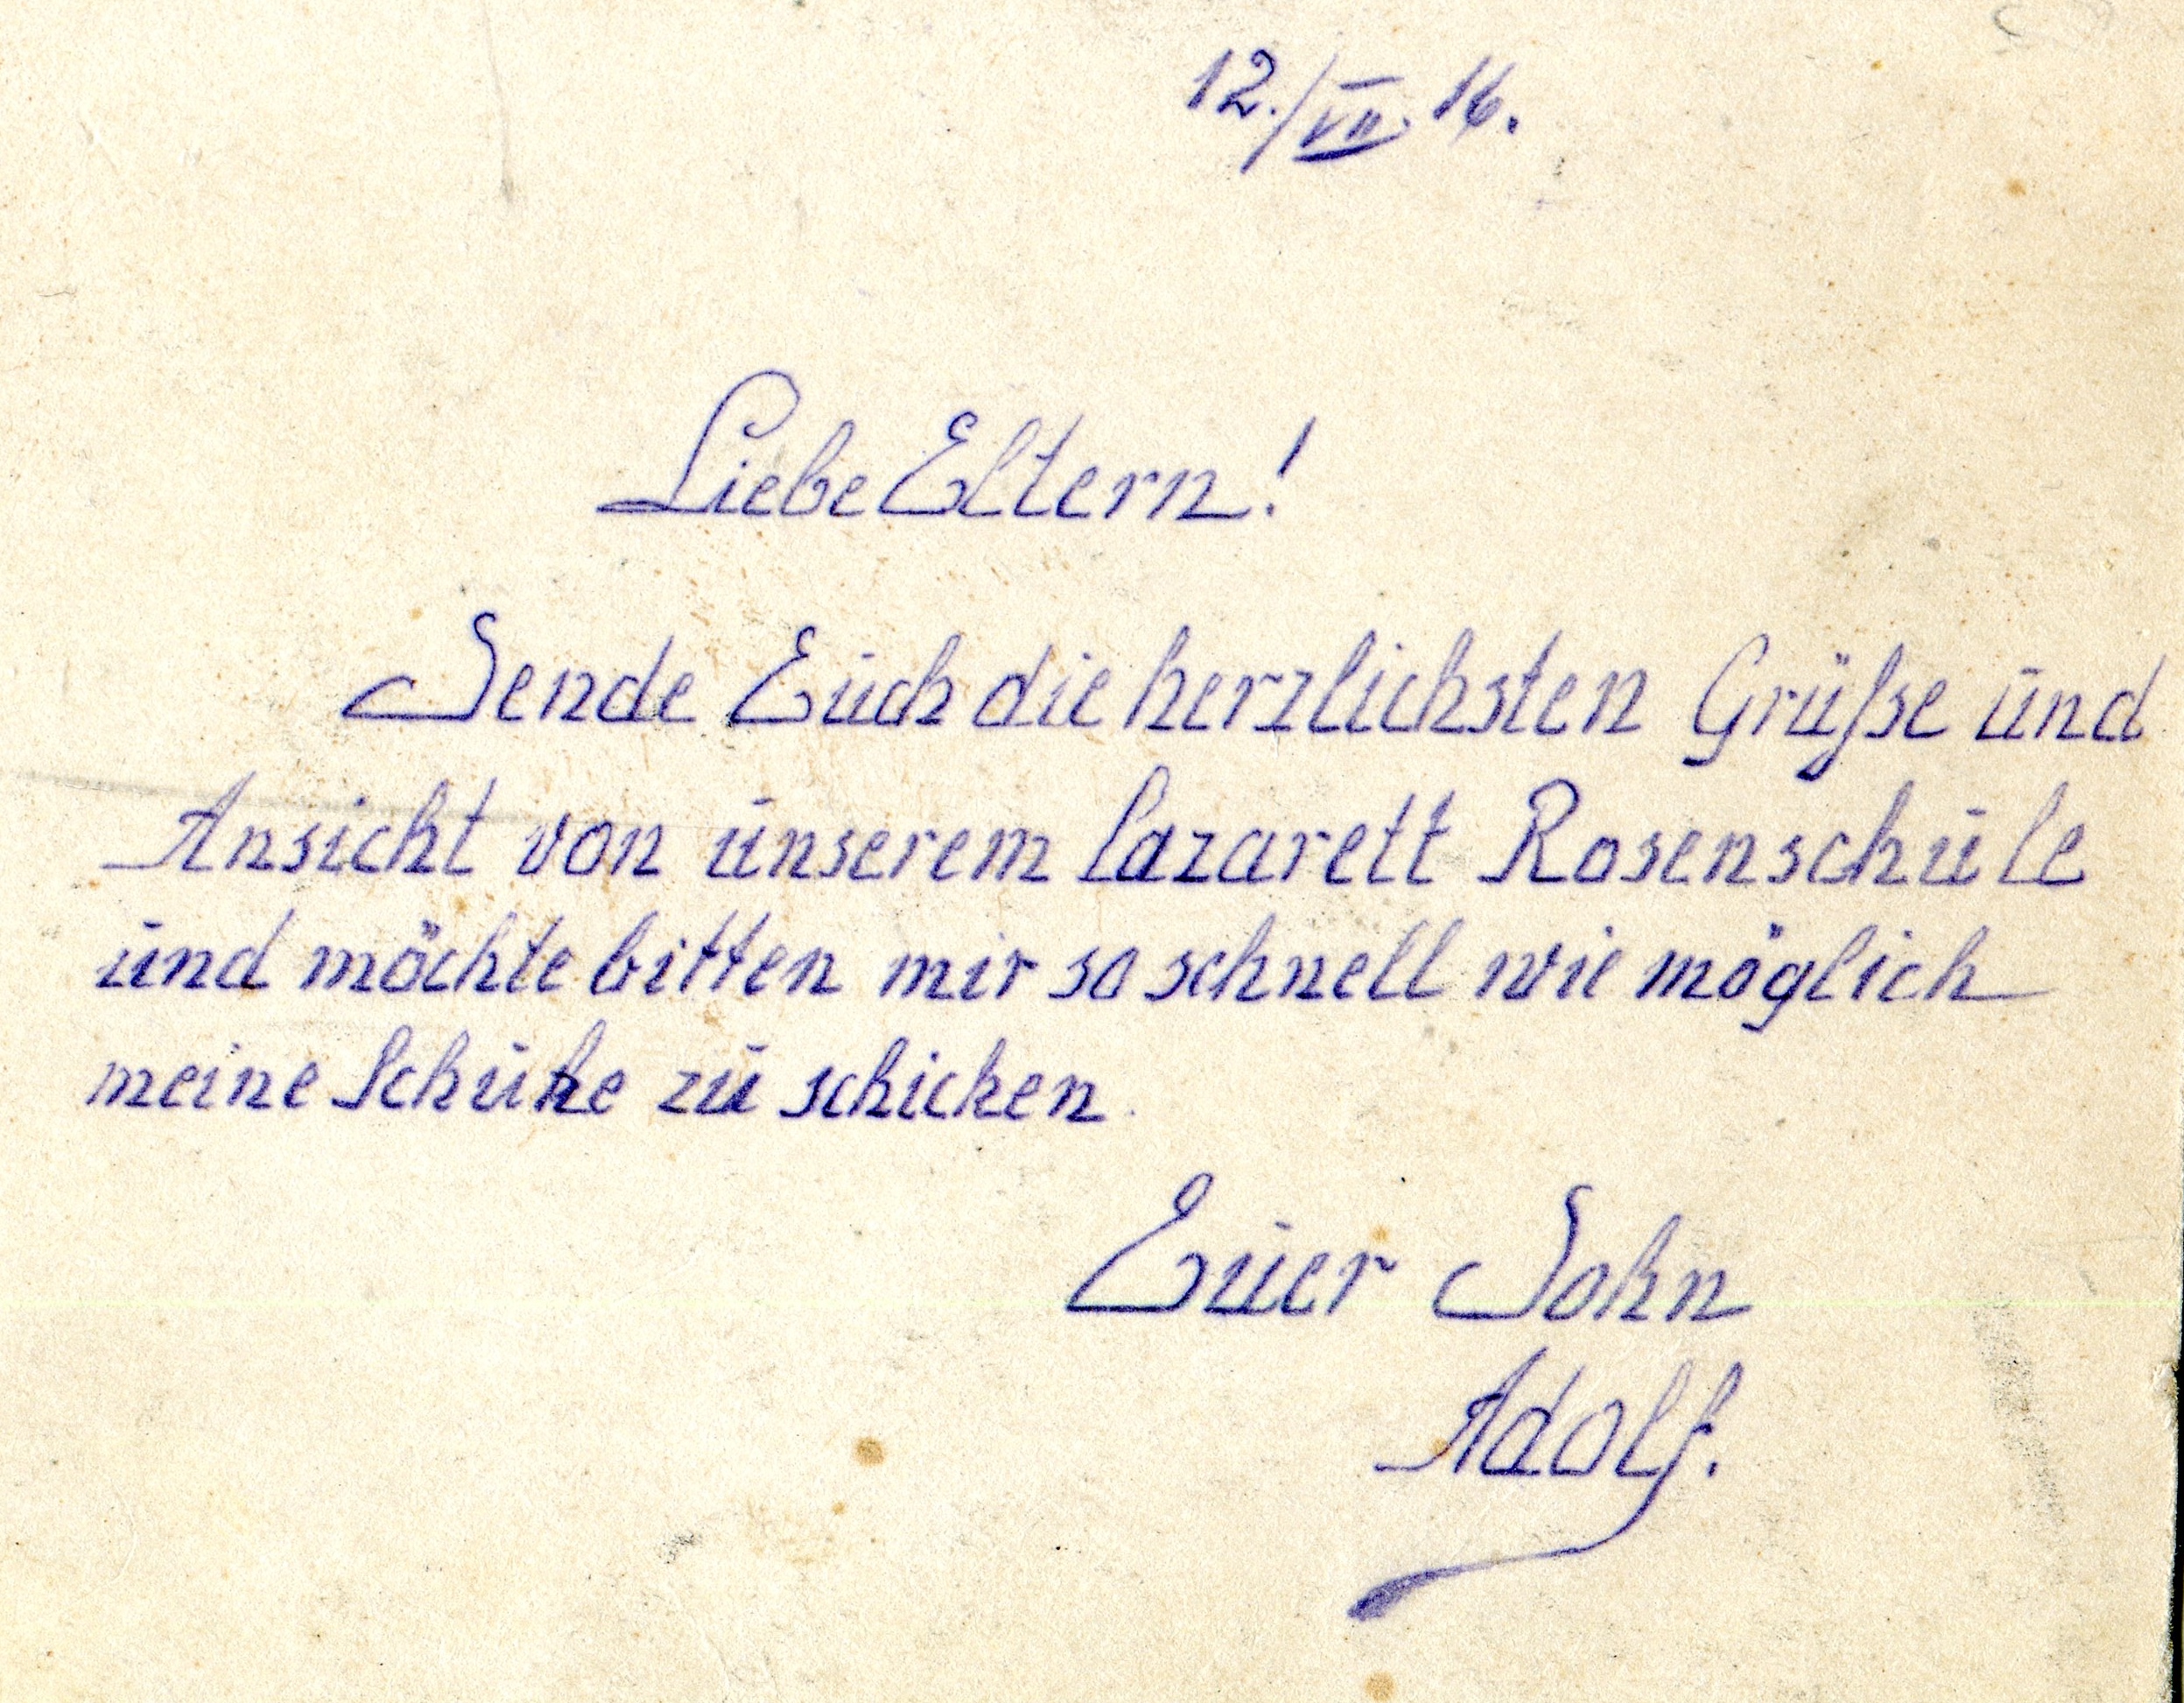 12./VII. 16.
Liebe Eltern!
Sende Euch die herzlichsten Grüße und
Ansicht von unserem Lazarett Rosenschule
und möchte bitten mir so schnell wie möglich
meine Schuhe zu schicken.
Euer Sohn
Adolf.